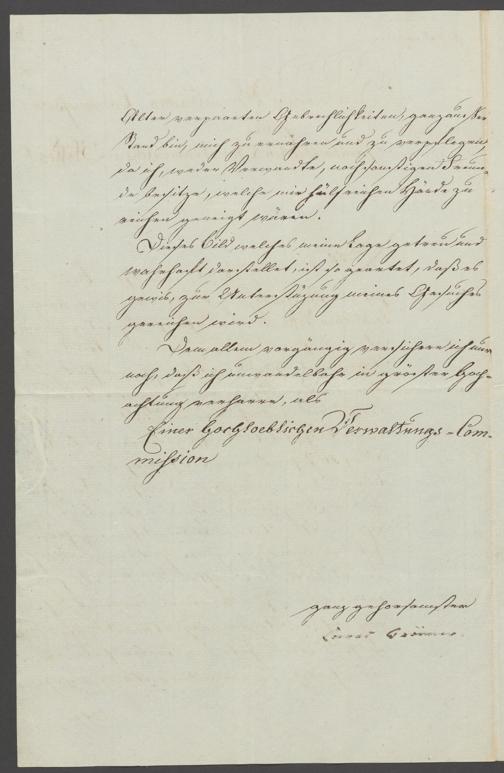 Alter verpaarten Gebrechlichkeiten, ganz ausser
Stand bin, mich zu ernähren und zu verpflegen,
da ich, weder Verwandte, noch sonstigen Freun-
de besitze, welche mir hülfreichen Hände zu
reichen geneigt wären.
Dieses Bild welches meine Lage getreu und
wahrhaft darstellet, ist so geartet, daß es
gewis, zur Unterstüzung meines Gesuches
gereichen wird.
Dem allem vorgängig versichere ich nur
noch, daß ich unwandelbahr in gröster Hoch-
achtung verharre, als
Einer Hochloeblichen Verwaltungs-Com-
mission
ganz gehorsamster